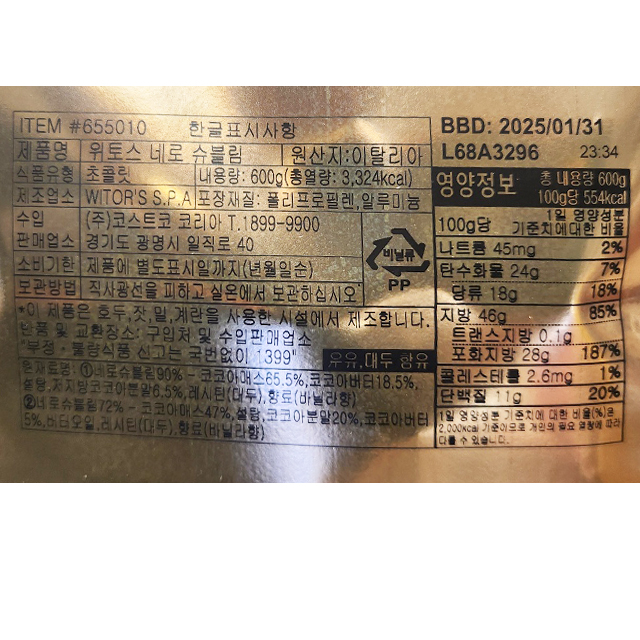 ITEM #655010 한글표시사항
제품명 위토스 네로 슈블림 원산지:이탈리아
식품유형 초콜릿 내용량: 600g(총열량: 3,324kcal)
제조업소 WITOR'S S.P.A 포장재질: 폴리프로필렌,알루미늄
수입 (주)코스트코 코리아 T.1899-9900
판매업소 경기도 광명시 일직로 40
소비기한 제품에 별도표시일까지(년월일순)
보관방법 직사광선을 피하고 실온에서 보관하십시오
비닐류
PP
*이 제품은 호두,잣,밀,계란을 사용한 시설에서 제조합니다.
반품 및 교환장소: 구입처 및 수입판매업소
부정·불량식품 신고는 국번없이 1399"
우유,대두 함유
원재료명: ①네로슈블림90% - 코코아매스65.5%, 코코아버터18.5%,
설탕,저지방코코아분말6.5%, 레시틴(대두),향료(바닐라향)
②네로슈블림72% - 코코아매스47%, 설탕,코코아분말20%,코코아버터
5%,버터오일,레시틴(대두),향료(바닐라향)
BBD: 2025/01/31
L68A3296 23:34
영양정보 총 내용량 600g
100g당 554kcal
100g당 1일 영양성분
기준치에대한 비율
나트륨 45mg 2%
탄수화물 24g 7%
당류 18g 18%
지방 46g 85%
트랜스지방 0.1g
포화지방 28g 187%
콜레스테롤 2.6mg 1%
단백질 11g 20%
1일 영양성분 기준치에 대한 비율(%)은
2,000kcal 기준이므로 개인의 필요 열량에 따라
다를 수 있습니다.